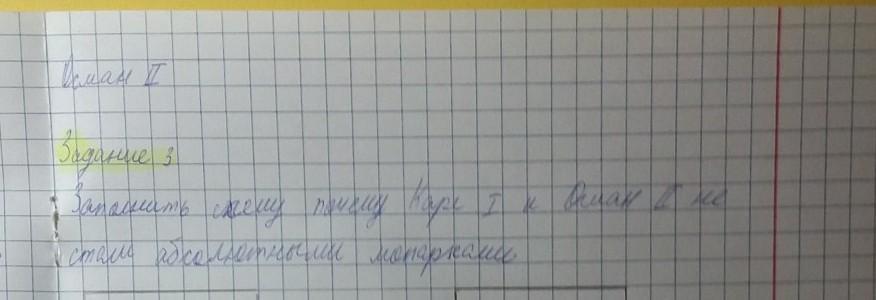 Осман II
Задание 3
Заполнить схему почему Карл I и Осман II не
стали абсолютными монарками